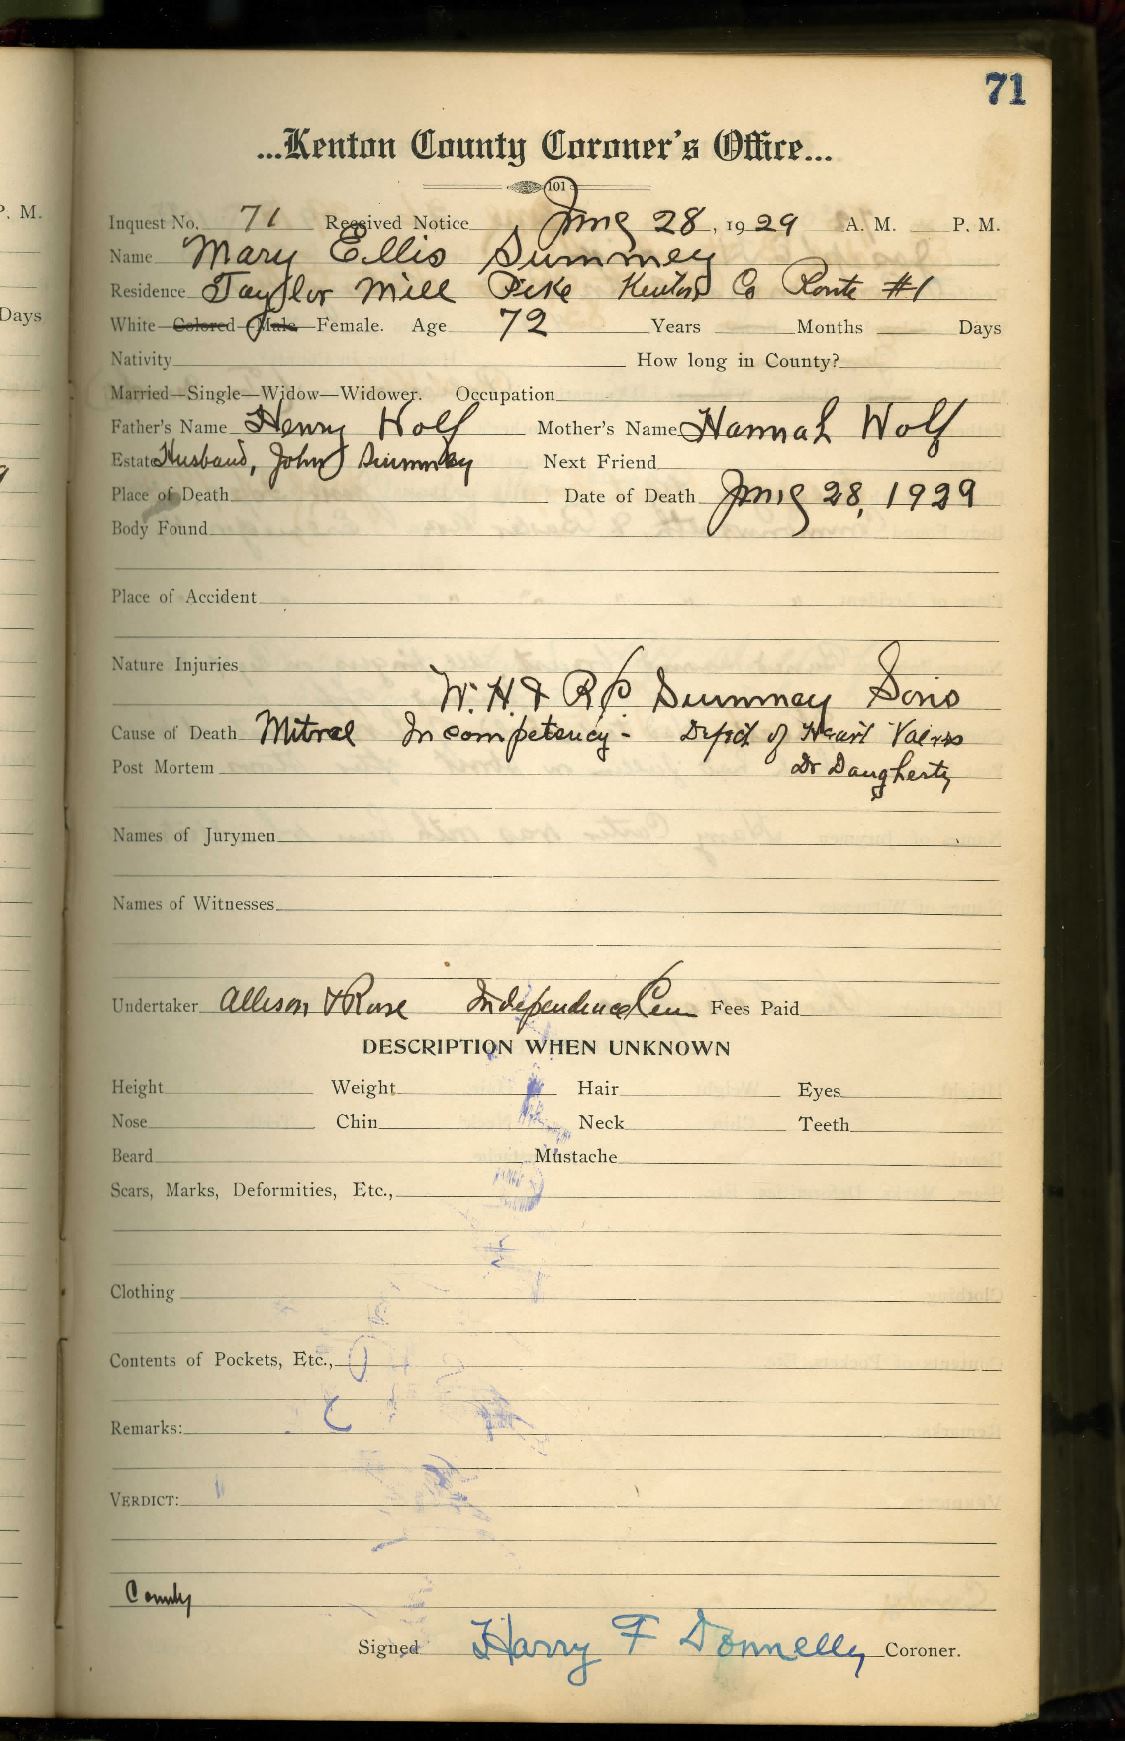 71
P. M.
Days
...Kenton County Coroner's Office...
101
Inquest No. 71 Received Notice June 28, 1929 A. M. P. M.
Name Mary Ellis Summey
Residence Taylor Mill Pike Kenton Co Route #1
White—Colored—Male—Female. Age 72 Years Months Days
Nativity How long in County?
Married—Single—Widow—Widower. Occupation
Father's Name Henry Wolf Mother's Name Hannah Wolf
Estate Husband, John Summey Next Friend
Place of Death Date of Death June 28, 1929
Body Found
Place of Accident
Nature Injuries
W. H. & R. P. Summey Sons
Cause of Death Mitral Incompetency - Defect of Heart Valves
Post Mortem Dr Daugherty
Names of Jurymen
Names of Witnesses
Undertaker Allison & Rose Independence Cem Fees Paid
DESCRIPTION WHEN UNKNOWN
Height Weight Hair Eyes
Nose Chin Neck Teeth
Beard Mustache
Scars, Marks, Deformities, Etc.,
Clothing
Contents of Pockets, Etc.,
Remarks:
VERDICT:
County
Signed Harry F Donnelly Coroner.